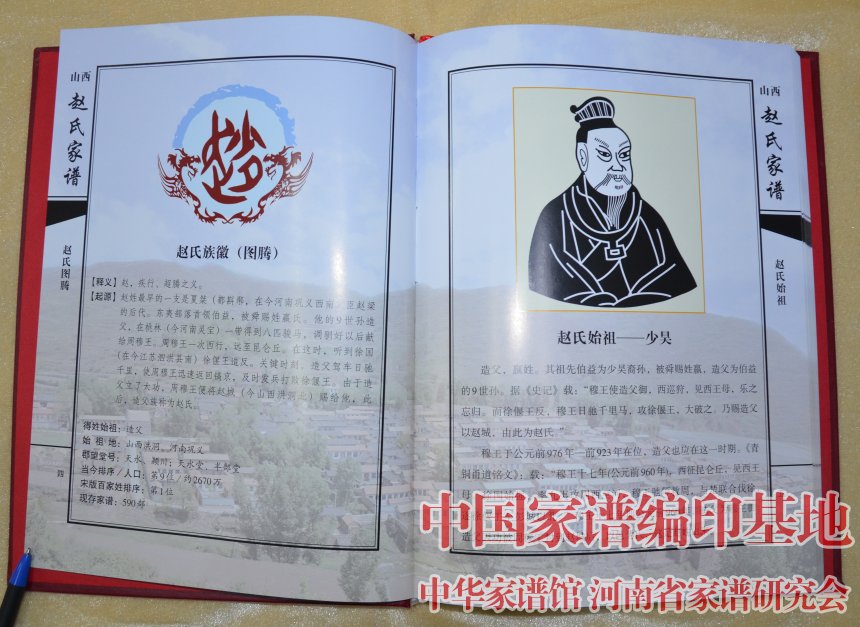 山西
赵氏家谱
赵氏图腾
四
赵氏族徽（图腾）
【释义】赵，疾行、超腾之义。
【起源】赵姓最早的一支是夏桀（都斟鄩，在今河南巩义西南）臣赵梁
的后代。东夷部落首领伯益，被舜赐姓嬴氏。他的9世孙造
父，在桃林（今河南灵宝）一带得到八匹骏马，调驯好以后献
给周穆王。周穆王一次西行，远至昆仑丘。在这时，听到徐国
（在今江苏泗洪县南）徐偃王造反。关键时刻，造父驾车日驰
千里，使周穆王迅速返回镐京，及时发兵打败徐偃王。由于造
父立了大功，周穆王便将赵城（今山西洪洞北）赐给他，此
后，造父族称为赵氏。
得姓始祖：造父
始 祖 地：山西洪洞、河南巩义
郡望堂号：天水、颍川；天水堂、半部堂
当今排序／人口：第9位／约2670万
宋版百家姓排序：第1位
现存家谱：590部
山西
赵氏家谱
赵氏始祖
赵氏始祖——少昊
造父，嬴姓。其祖先伯益为少昊裔孙，被舜赐姓嬴，造父为伯益
的9世孙。据《史记》载：“穆王使造父御，西巡狩，见西王母，乐之
忘归。而徐偃王反，穆王日驰千里马，攻徐偃王，大破之。乃赐造父
以赵城，由此为赵氏。”
穆王于公元前976年—前923年在位，造父也应在这一时期。《青
铜甬道铭文》：载：“穆王十七年(公元前960年)，西征昆仑丘，见西王
中国家谱编印基地
中华家谱馆 河南省家谱研究会